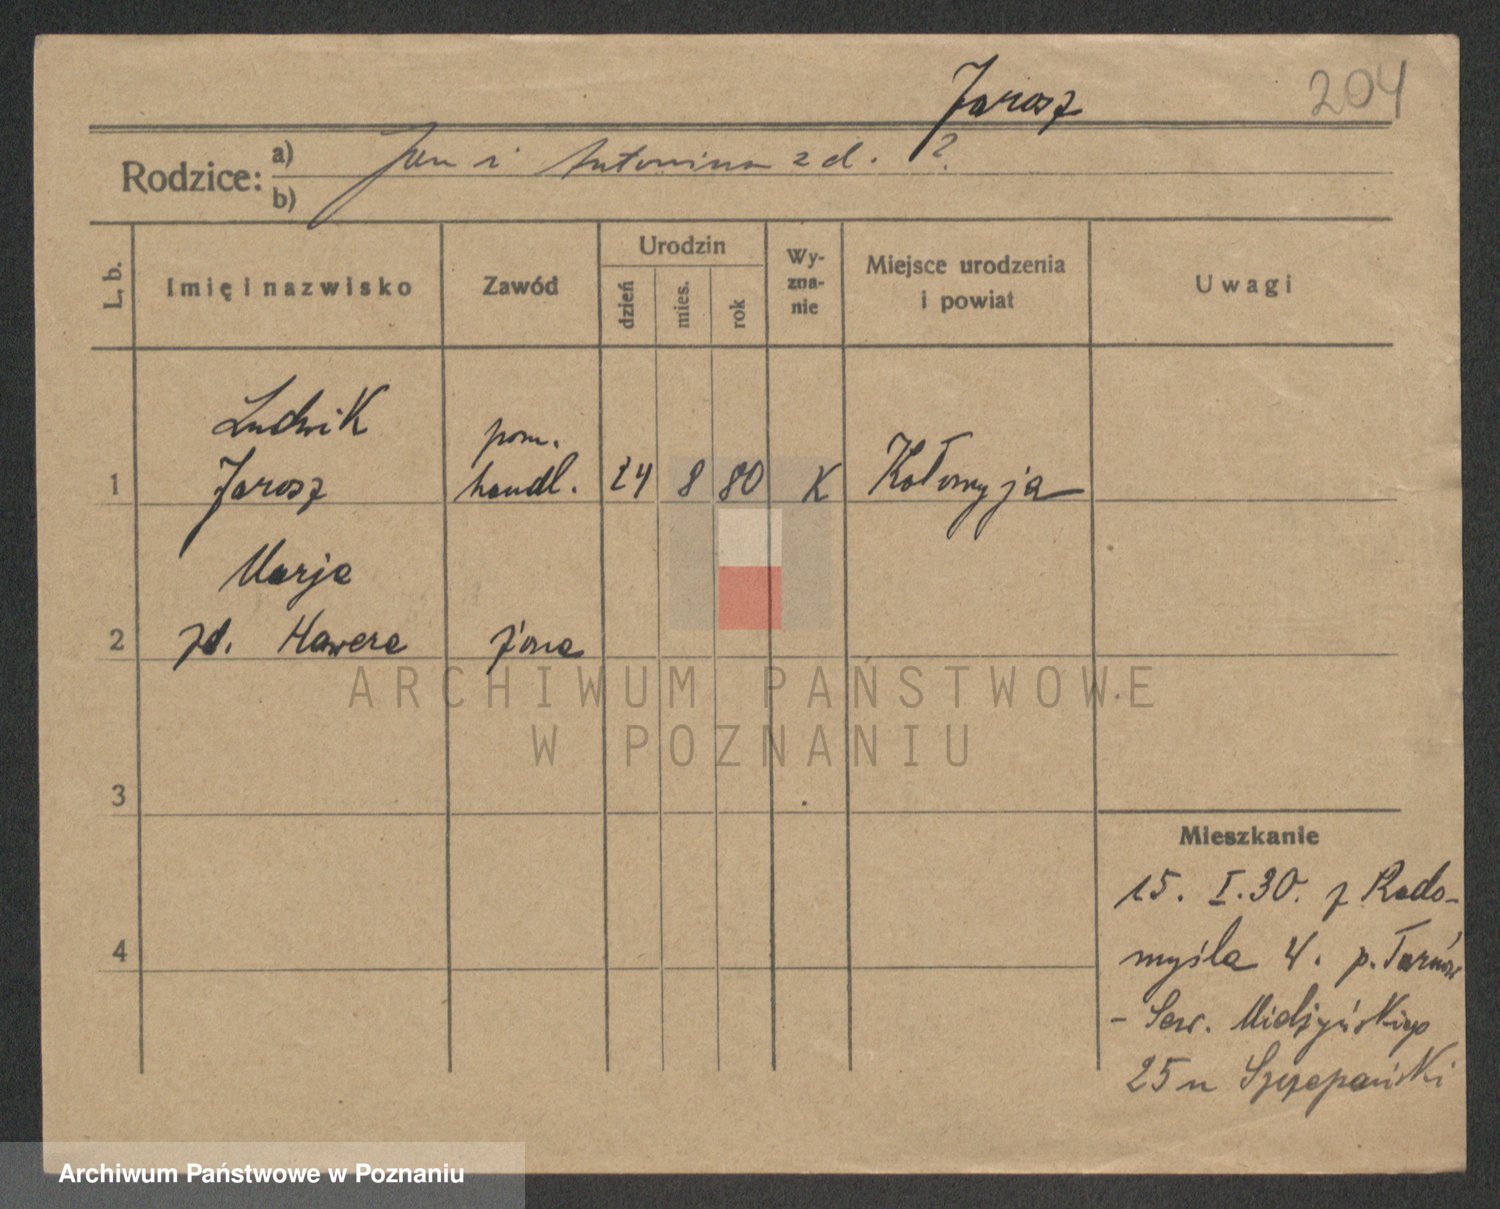 Jarosz
204
Rodzice: a) Jan i Antonina z d. ?
b)
L. b.
Imię i nazwisko
Zawód
Urodzin
dzień
mies.
rok
Wy-
zna-
nie
Miejsce urodzenia
i powiat
Uwagi
Ludwik
Jarosz
pom.
handl.
1
24 8 80 K Kołomyja
Marja
2 zd. Hawera żona
ARCHIWUM PAŃSTWOWE
W POZNANIU
3
Mieszkanie
15. I. 30. z Rado-
myśla 4. p.
4
- Sew.
25 u Szczepański
Archiwum Państwowe w Poznaniu